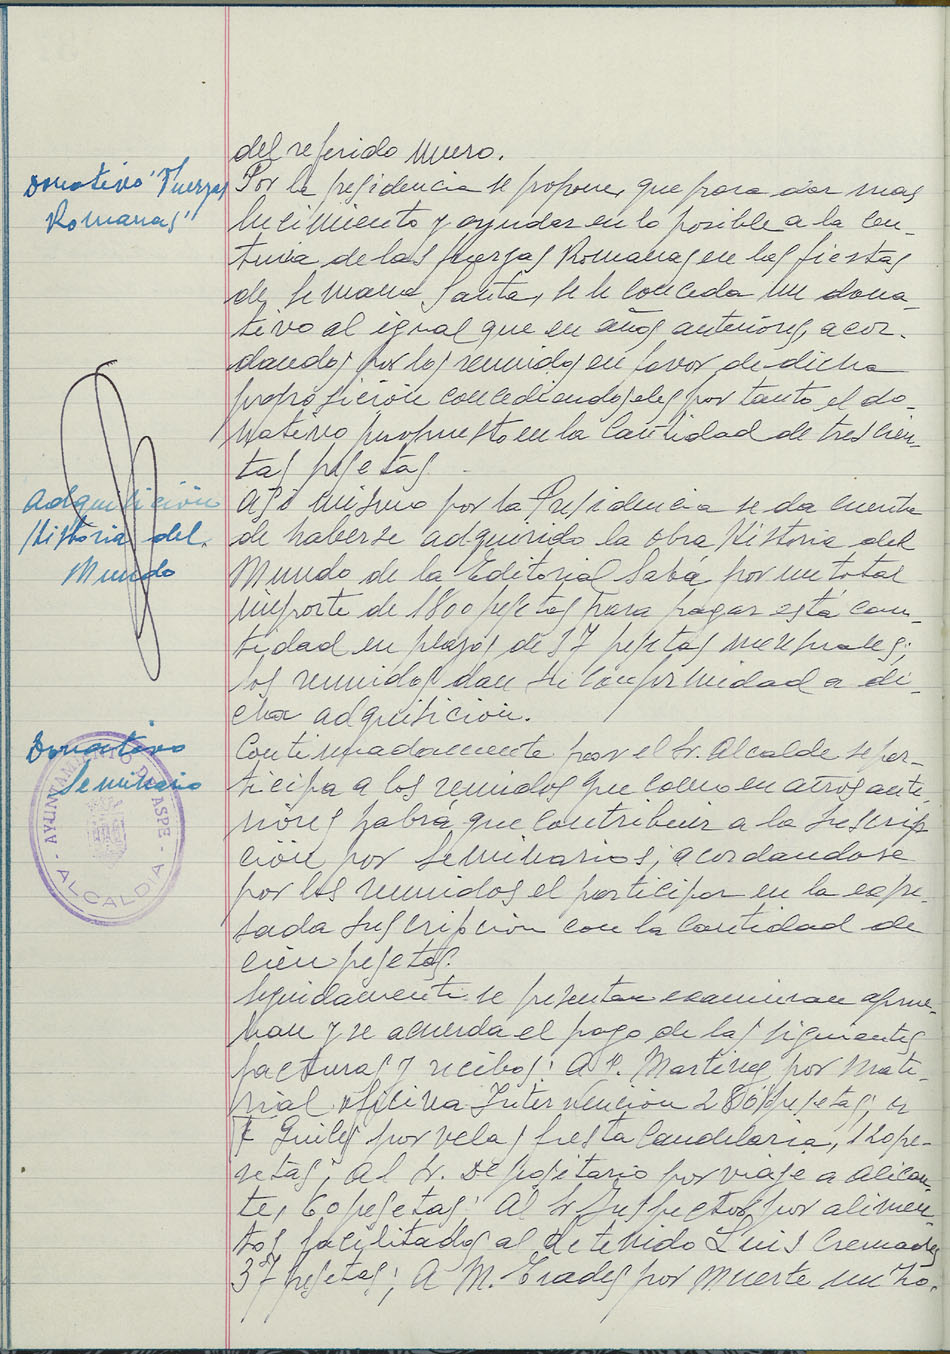 del referido muro.
Donativo "Fuerzas
Romanas"
Por la presidencia se propone, que para dar mas
lucimiento y ayudar en lo posible a la Cen-
turia de las fuerzas Romanas en las fiestas
de Semana Santa, se le conceda un dona-
tivo al igual que en años anteriores, acor-
dandos por los reunidos en favor de dicha
proposición concediendoseles por tanto el do-
nativo propuesto en la Cantidad de trescien-
tas pesetas.
Adquisición
Historia del
Mundo
Asi mismo por la Presidencia se da cuenta
de haberse adquirido la obra Historia del
Mundo de la Editorial Sabá por un total
importe de 1800 pesetas para pagar esta can-
tidad en plazos de 37 pesetas mensuales;
los reunidos dan su conformidad a di-
cha adquisición.
Donativo
Seminario
AYUNTAMIENTO DE ASPE
- ALCALDIA -
Continuadamente por el Sr. Alcalde se par-
ticipa a los reunidos que como en años ante
riores habrá que contribuir a la suscrip
ción por Seminarios, acordandose
por los reunidos el participar en la expre-
sada suscripción con la Cantidad de
cien pesetas.
Seguidamente se presentan examinan aprue-
ban y se acuerda el pago de las siguientes
facturas y recibos: A P. Martinez por mate-
rial oficina Intervención 286 pesetas; a
F Guiles por velas fiesta Candelaria, 120 pe-
setas; al Sr. Depositario por viaje a Alican-
te, 60 pesetas; Al Sr Inspector por alimen-
tos facilitados al detenido Luis Cremades
37 pesetas; A M. Erades por muerte un zo-